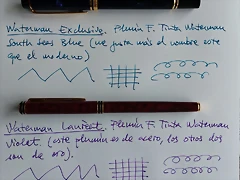 Waterman Exclusive. Plumín F. Tinta Waterman
South Seas Blue (me gusta más el nombre este
que el moderno)
Waterman Lauréat. Plumín F. Tinta Waterman
Violet. (este plumín es de acero, los otros dos
son de oro).